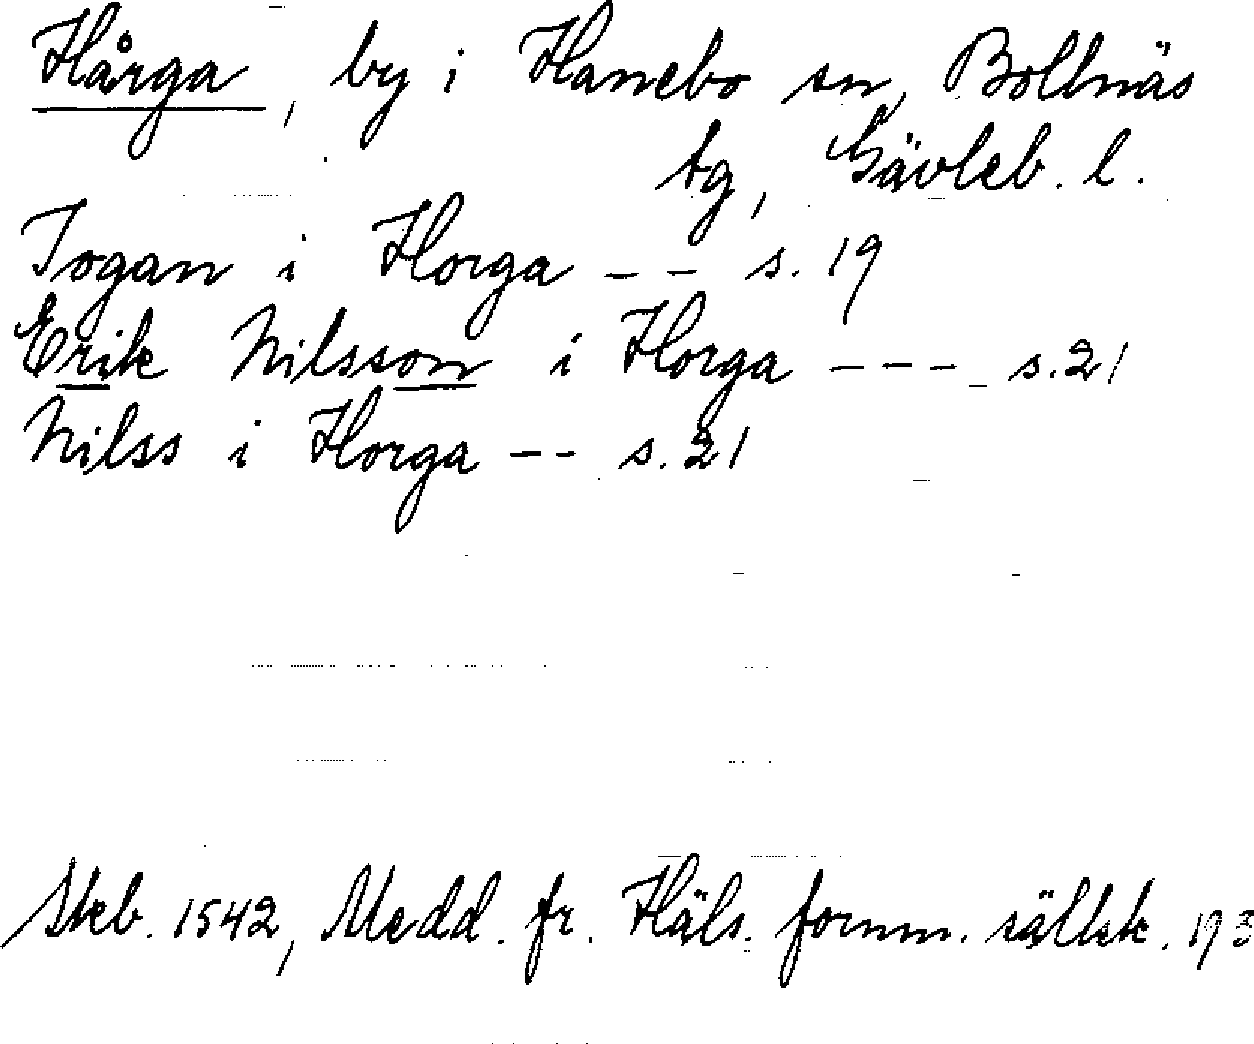 Hårga, by i Hanebo sn, Bollnäs
tg, Gävleb. l.
Jogan i Horga _ _ s. 19
Erik Nilsson i Horga _ _ _ _ s. 21
Nilss i Horga _ _ s. 21
Skeb. 1542, Medd. fr. Häls. fornm. sällsk. 193